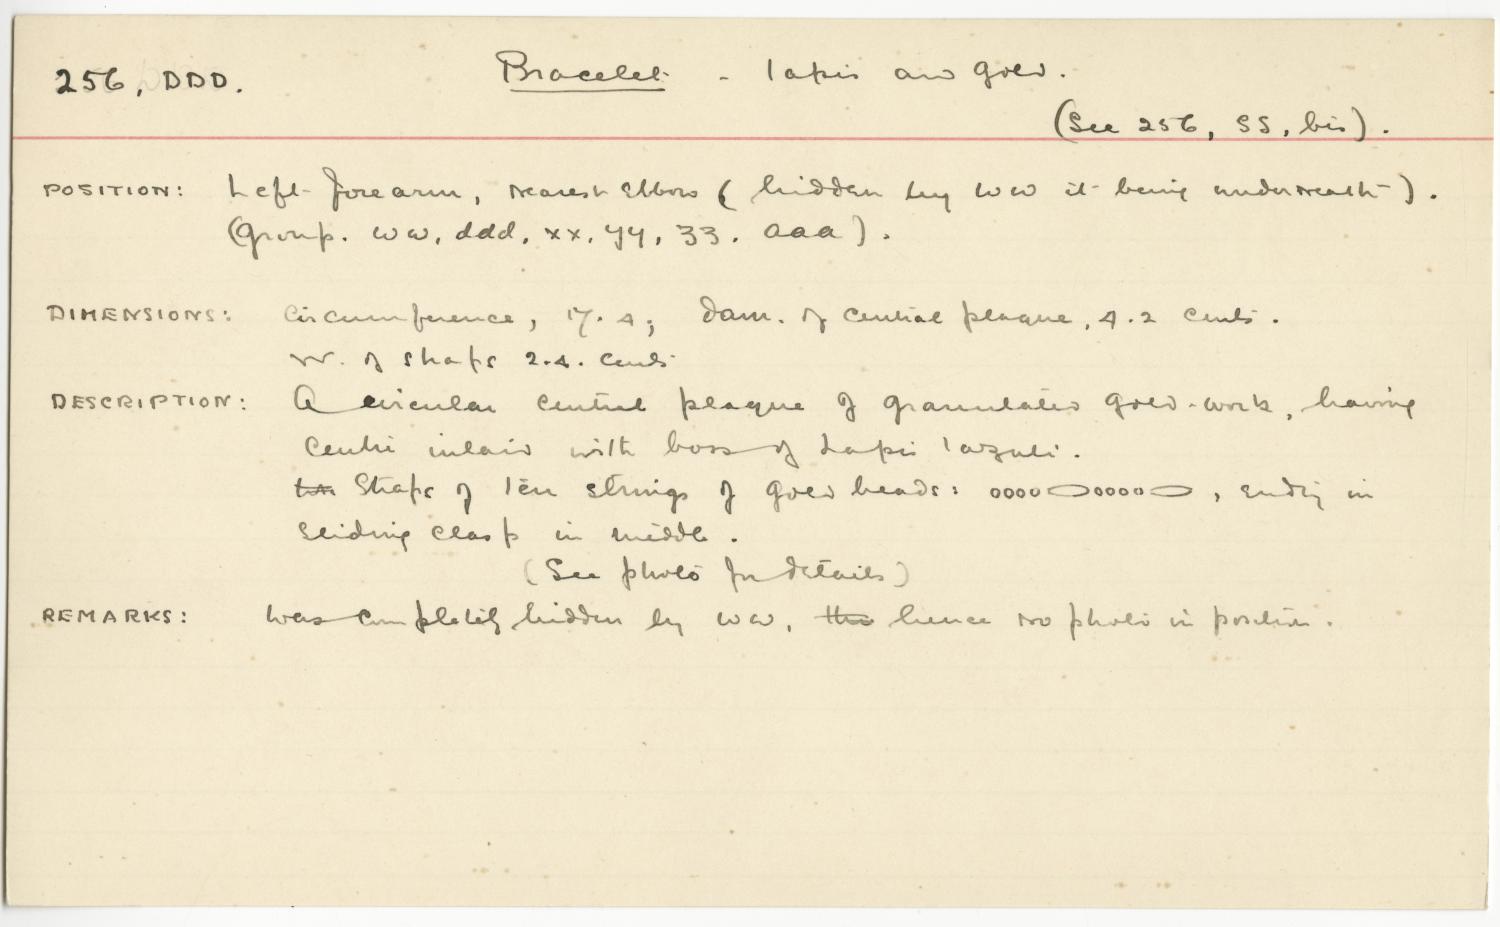 256, DDD.
Bracelet - lapis and gold.
(See 256, SS, bis).
POSITION: Left forearm, nearest elbow (hidden by ww it being underneath).
(Group. ww, ddd, xx, yy, zz. aaa).
DIMENSIONS: Circumference, 17.4; Diam. of central plaque, 4.2 cents.
W. of straps 2.4. cents
DESCRIPTION: A circular central plaque of granulated gold-work, having
centre inlaid with boss of lapis lazuli.
Straps of ten strings of gold beads: , ending in
sliding clasp in middle.
(See photo for details)
REMARKS: was completely hidden by ww, the hence no photo in position.